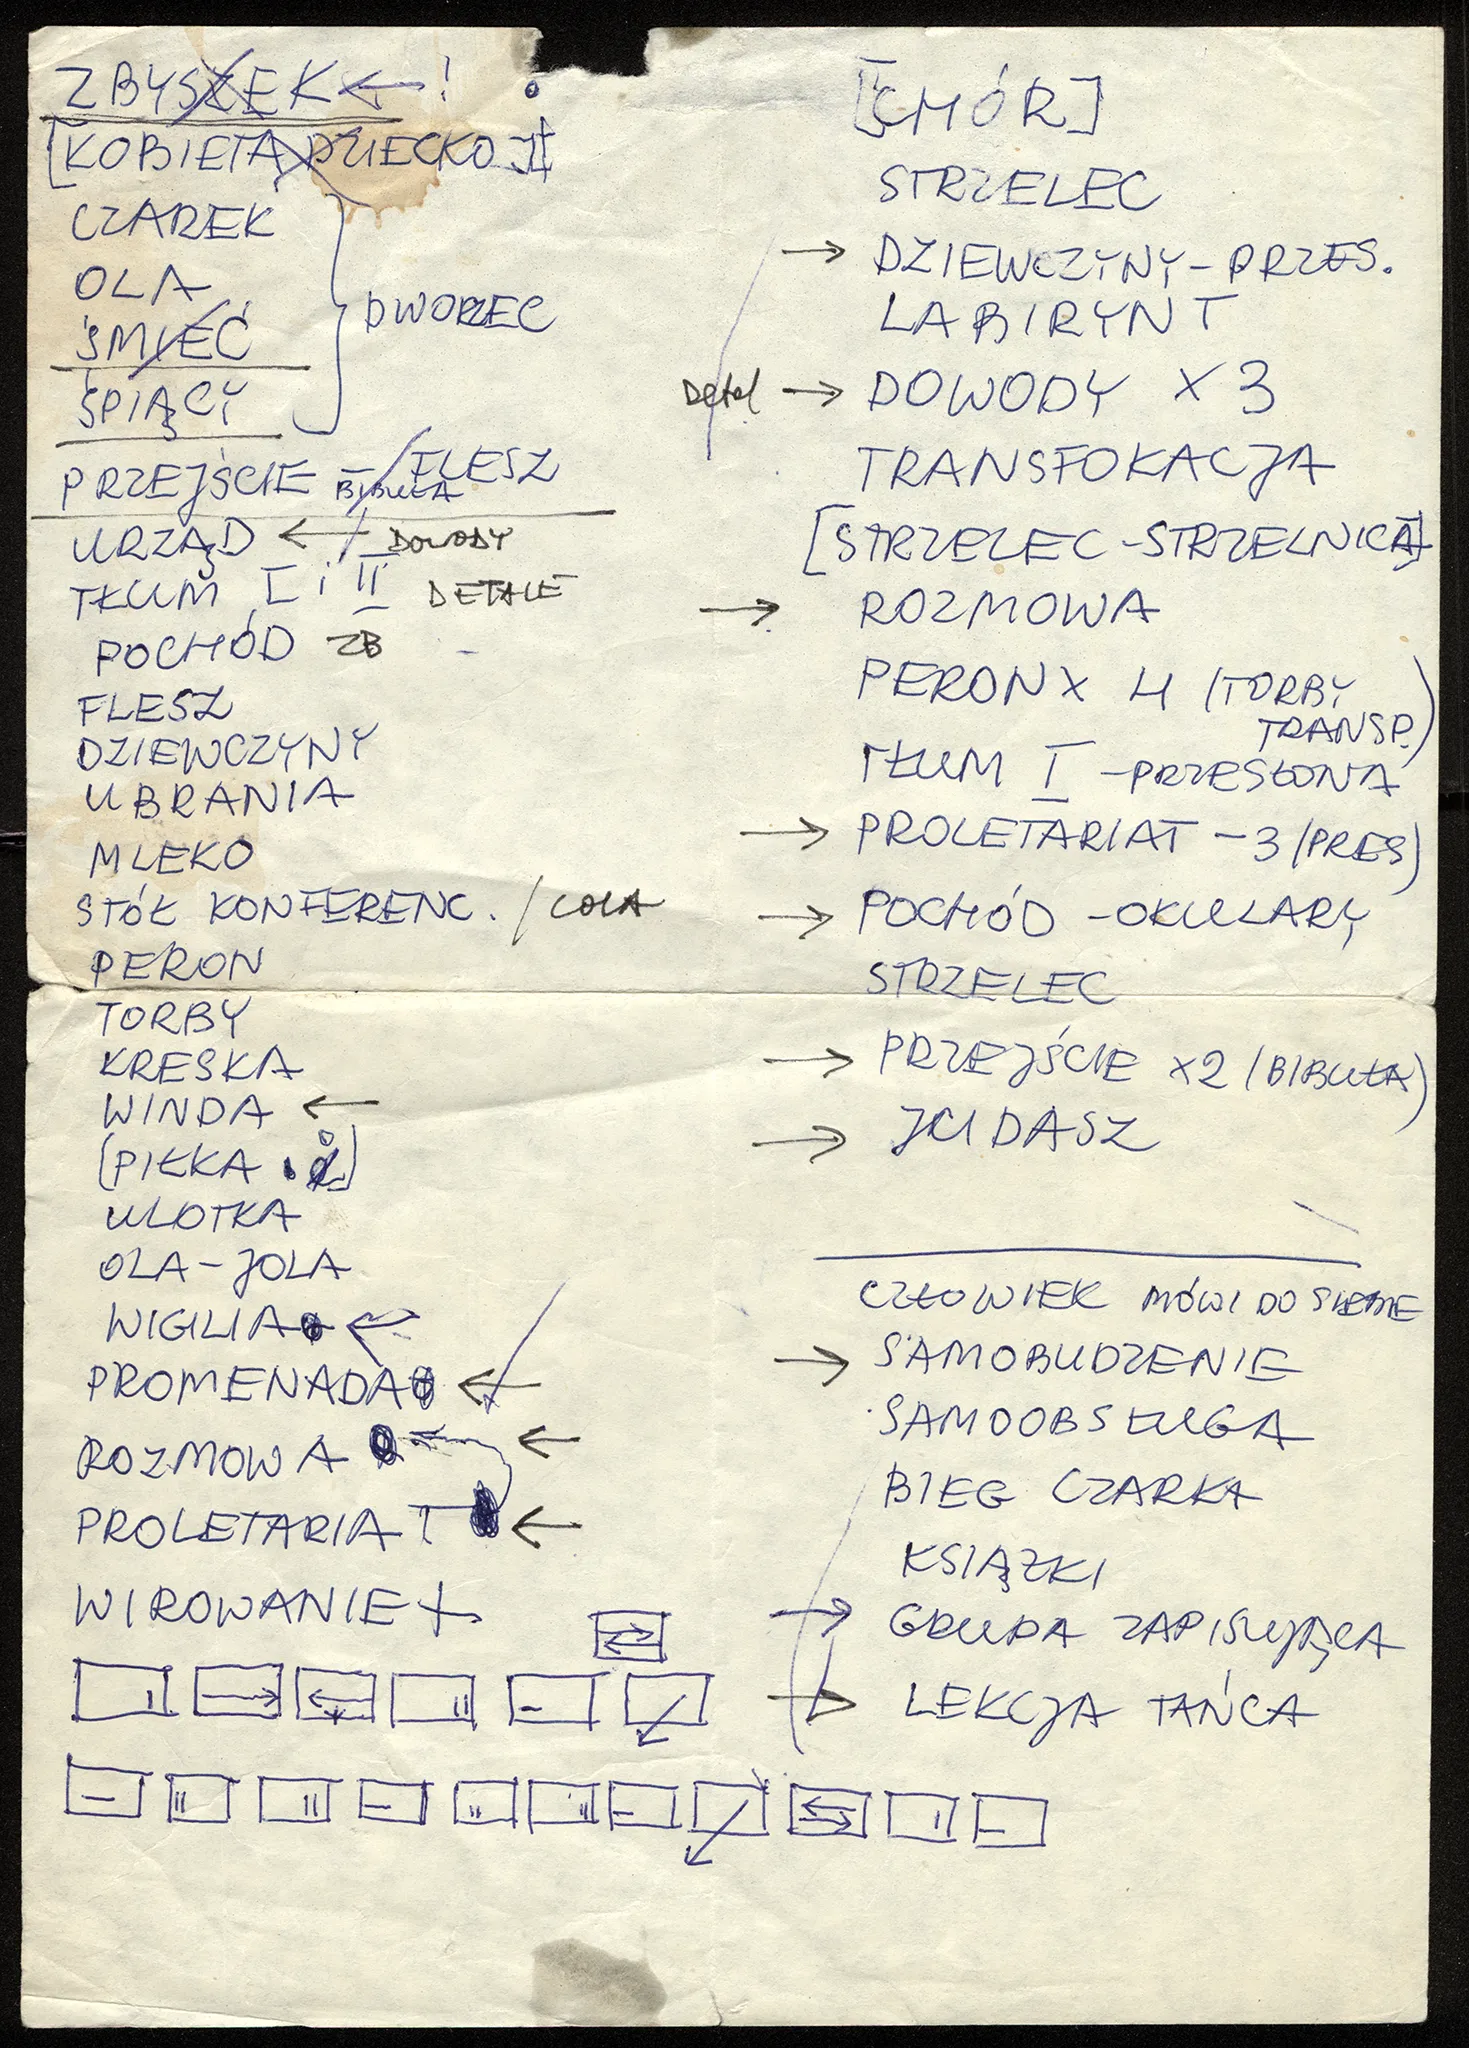 ZBYSZEK ← !
[KOBIETA DZIECKO]
CZAREK
OLA
ŚMIEĆ
ŚPIĄCY
DWORZEC
PRZEJŚCIE – FLESZ
BIBUŁA
URZĄD ← DOWODY
TŁUM I i II DETALE
POCHÓD ZB
FLESZ
DZIEWCZYNY
UBRANIA
MLEKO
STÓŁ KONFERENC. / COLA
PERON
TORBY
KRESKA
WINDA ←
(PIŁKA
ULOTKA
OLA – JOLA
WIGILIA ←
PROMENADA ←
ROZMOWA ←
PROLETARIAT ←
WIROWANIE +
[CHÓR]
STRZELEC
→ DZIEWCZYNY – PRZES.
LABIRYNT
Detal → DOWODY X 3
TRANSFOKACJA
[STRZELEC – STRZELNICA]
→ ROZMOWA
PERON X 4 (TORBY
TRANSP.)
TŁUM I – PRZESŁONA
→ PROLETARIAT – 3 (PRES)
→ POCHÓD – OKULARY
STRZELEC
→ PRZEJŚCIE X2 (BIBUŁA)
→ JUDASZ
CZŁOWIEK MÓWI DO SIEBIE
→ SAMOBUDZENIE
SAMOOBSŁUGA
BIEG CZARKA
KSIĄŻKI
→ GRUPA ZAPISUJĄCA
→ LEKCJA TAŃCA